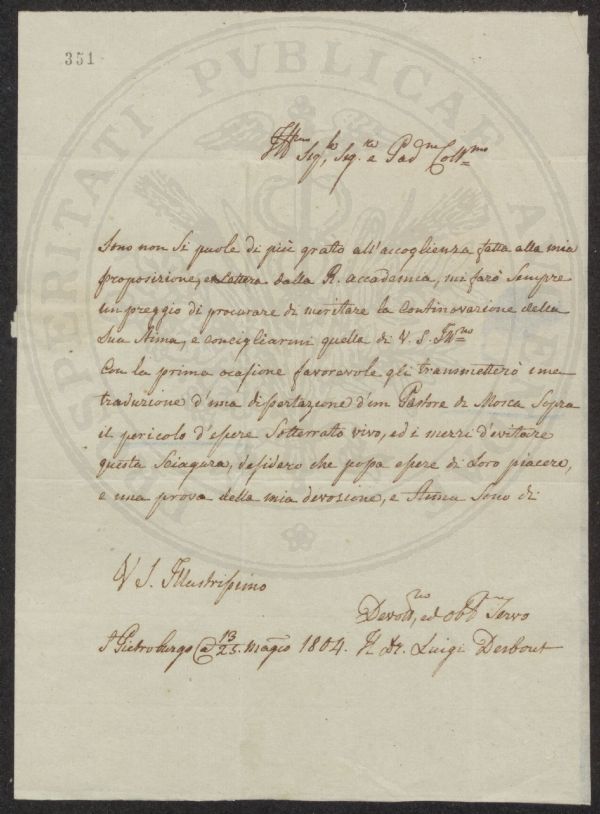 351
Ill.mo Sig.re Sig.re e Pad.n Coll.mo
Sono non si puole di più grato all'accoglienza fatta alla mia
proposizione, e Lettera dalla R. accademia, mi farò sempre
un preggio di procurare di meritare la Continovazione della
Sua stima, e concigliarmi quella di V. S. Ill.mo
Con la prima ocasione favorevole gli transmetterò una
traduzione d'una dissertazione d'un Pastore di Mosca Sopra
il pericolo d'essere Sotterrato vivo, ed i mezzi d'evitare
questa Sciagura, desidero che possa essere di Loro piacere,
e una prova della mia devozione, e stima Sono di
V S. Illustrissimo
Devott.mo, ed obb.mo Servo
S Pietroburgo 13/25. Maggio 1804. Il Dr. Luigi Desbout
PROSPERITATI PVBLICAE